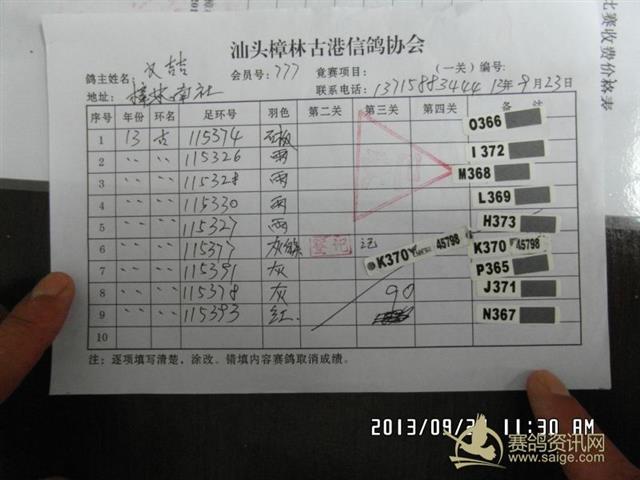 比赛收费价格表
汕头樟林古港信鸽协会
鸽主姓名: 会员号: 777 竟赛项目: (一关)编号:
地址: 樟林南社 联系电话: 13715883444 13年9月23日
序号 年份 环名 足环号 羽色 第二关 第三关 第四关 备注
1 13 古 115374 O366
2 〃 〃 115326 雨 I372
3 〃 〃 115328 雨 M368
4 〃 〃 115330 雨 L369
5 〃 〃 115327 雨 H373
6 〃 〃 115377 登记 记 K370 45798 K370 45798
7 〃 〃 115391 灰 P365
8 〃 〃 115378 灰 90 J371
9 〃 〃 115393 红 N367
10
注: 逐项填写清楚, 涂改、错填内容赛鸽取消成绩。
2013/09/2 11:30 AM
赛鸽资讯网
www.saige.com